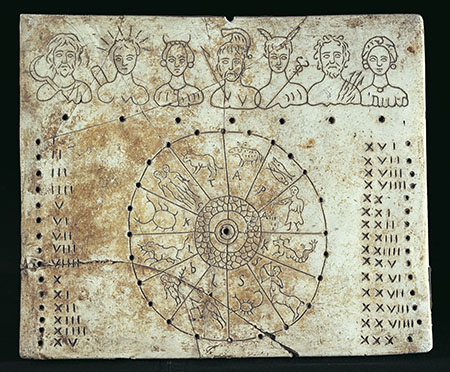 T A P
L S
II
III
IIII
V
VI
VII
VIII
VIIII
X
XI
XII
XIII
XIIII
XV
XVI
XVII
XVIII
XVIIII
XX
XXI
XXII
XXIII
XXIIII
XXV
XXVI
XXVII
XXVIII
XXVIIII
XXX